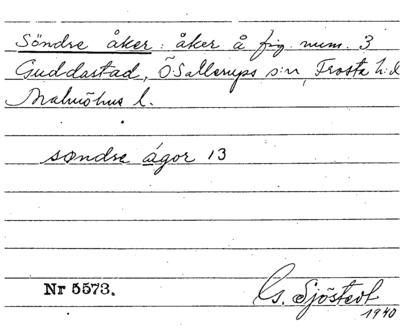 Söndre åker: åker å fig. num. 3
Guddastad, Ö Sallerups s:n, Frosta h:d
Malmöhus l.
søndre ågor 13
Nr 5573.
G. Sjöstedt
1940